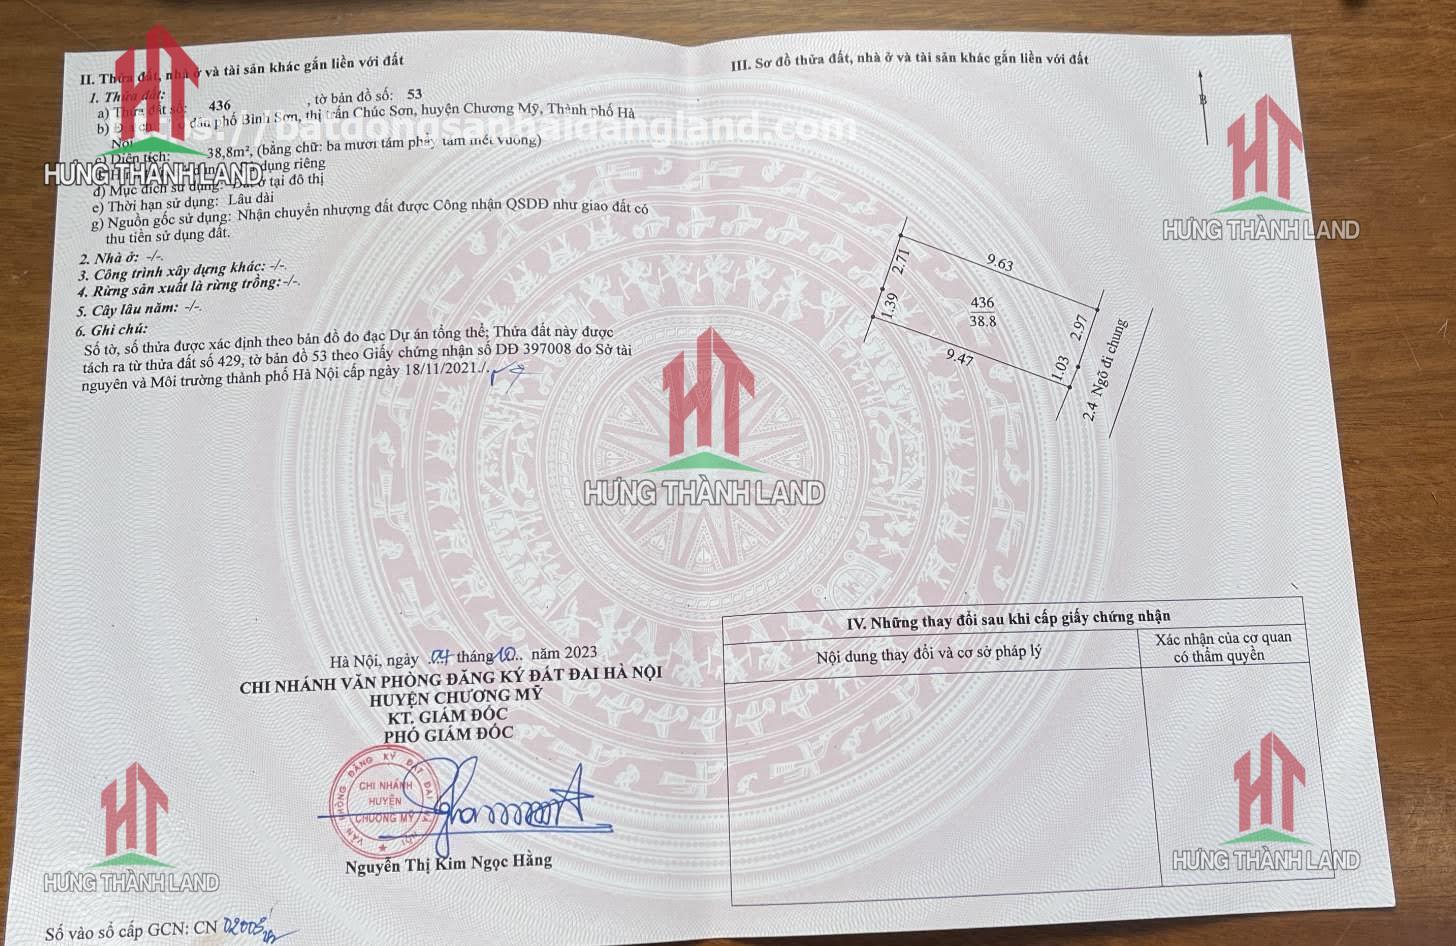 II. Thửa đất, nhà ở và tài sản khác gắn liền với đất
1. Thửa đất:
a) Thửa đất số: 436, tờ bản đồ số: 53
b) phố Bình Sơn, thị trấn Chúc Sơn, huyện Chương Mỹ, Thành phố Hà
Nội
c) Diện tích: 38,8m², (bằng chữ: ba mươi tám phẩy tám mét vuông)
dụng riêng
d) Mục đích sử dụng: Đất ở tại đô thị
e) Thời hạn sử dụng: Lâu dài
g) Nguồn gốc sử dụng: Nhận chuyển nhượng đất được Công nhận QSDĐ như giao đất có
thu tiền sử dụng đất.
2. Nhà ở: -/-.
3. Công trình xây dựng khác: -/-.
4. Rừng sản xuất là rừng trồng: -/-.
5. Cây lâu năm: -/-.
6. Ghi chú:
Số tờ, số thửa được xác định theo bản đồ đo đạc Dự án tổng thể; Thửa đất này được
tách ra từ thửa đất số 429, tờ bản đồ 53 theo Giấy chứng nhận số DĐ 397008 do Sở tài
nguyên và Môi trường thành phố Hà Nội cấp ngày 18/11/2021./.
Hà Nội, ngày 04 tháng 10 năm 2023
CHI NHÁNH VĂN PHÒNG ĐĂNG KÝ ĐẤT ĐAI HÀ NỘI
HUYỆN CHƯƠNG MỸ
KT. GIÁM ĐỐC
PHÓ GIÁM ĐỐC
VĂN PHÒNG ĐĂNG KÝ ĐẤT ĐAI
CHI NHÁNH
HUYỆN
CHƯƠNG MỸ
Nguyễn Thị Kim Ngọc Hằng
Số vào sổ cấp GCN: CN
III. Sơ đồ thửa đất, nhà ở và tài sản khác gắn liền với đất
B
2.71
9.63
1.39
436
38.8
2.97
9.47
1.03
2.4 Ngõ đi chung
IV. Những thay đổi sau khi cấp giấy chứng nhận
Nội dung thay đổi và cơ sở pháp lý
Xác nhận của cơ quan
có thẩm quyền
https://batdongsanhaidangland.com
HƯNG THÀNH LAND
HƯNG THÀNH LAND
HƯNG THÀNH LAND
HƯNG THÀNH LAND
HƯNG THÀNH LAND